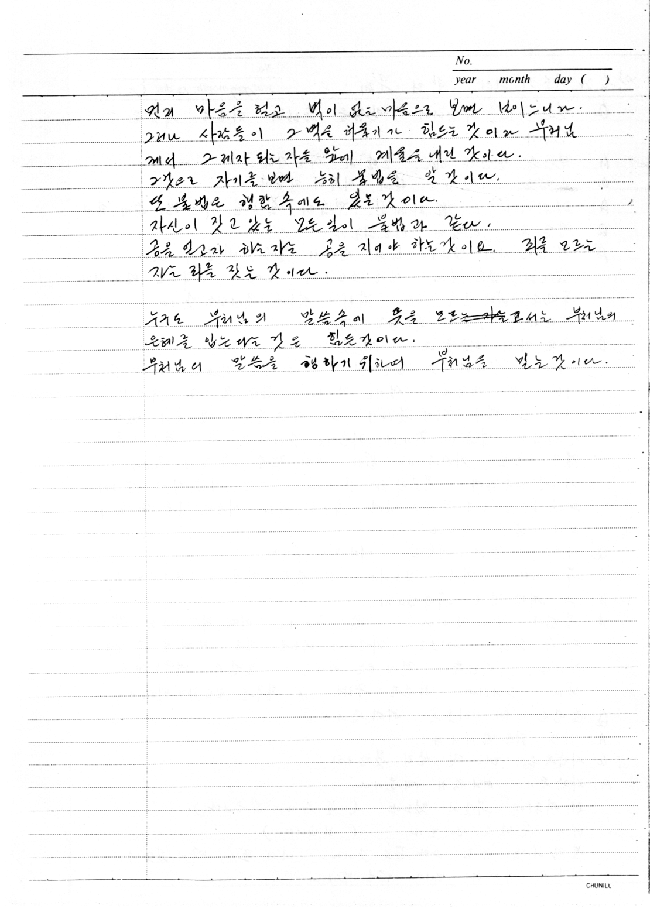 No.
year month day ( )
먼저 마음을 열고 벽이 없는 마음으로 보면 보이느니라.
그러나 사람들이 그 벽을 허물기가 힘드는 것이라 부처님
께서 그 제자 되는 자들 앞에 계율을 내린 것이다.
그것으로 자기를 보면 능히 불법을 알 것이다.
또 불법은 행함 속에도 있는 것이다.
자신이 짓고 있는 모든 일이 불법과 같다.
공을 얻고자 하는 자는 공을 지어야 하는 것이요. 죄를 모르는
자는 죄를 짓는 것이다.
누구도 부처님의 말씀속에 뜻을 모르고서는 부처님의
은혜를 입는다는 것은 힘든것이다.
부처님의 말씀을 행하기 위하여 부처님을 믿는 것이다.
CHUNILL